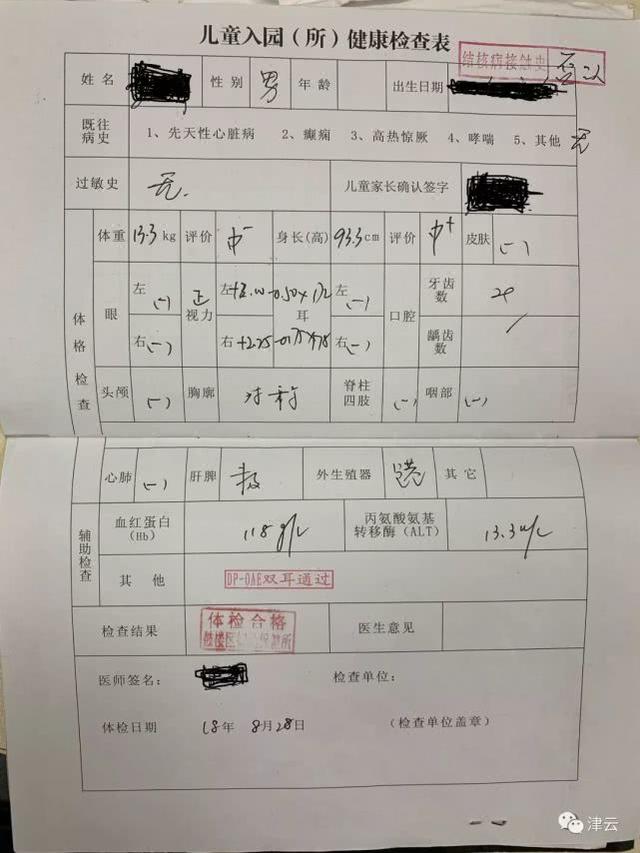 儿童入园（所）健康检查表
结核病接触史 否认
姓名 性别 男 年龄 出生日期
既往病史 1、先天性心脏病 2、癫痫 3、高热惊厥 4、哮喘 5、其他 无
过敏史 无. 儿童家长确认签字
体格检查
体重 13.3 kg 评价 中- 身长(高) 93.3 cm 评价 中+ 皮肤 (-)
眼 左 (-) 视力 正 左 +2.00 -0.50× 耳 左 (-) 口腔 牙齿数 20
右 (-) 右 +2.75 右 (-) 龋齿数 /
头颅 (-) 胸廓 对称 脊柱四肢 (-) 咽部 (-)
心肺 (-) 肝脾 外生殖器 其它
辅助检查
血红蛋白(Hb) 118 g/L 丙氨酸氨基转移酶(ALT) 13.3 u/L
其他 DP-OAE双耳通过
检查结果 体检合格 医生意见
医师签名： 检查单位：
体检日期 18年 8月28日 (检查单位盖章)
津云